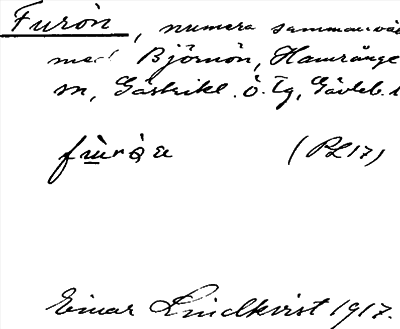 Furön, numera sammanväx
med Björnön, Hamrånge
sn, Gästrikl. ö. Tg, Gävleb. l
fùrȯ̀n (PL 17)
Einar Lindkvist 1917.